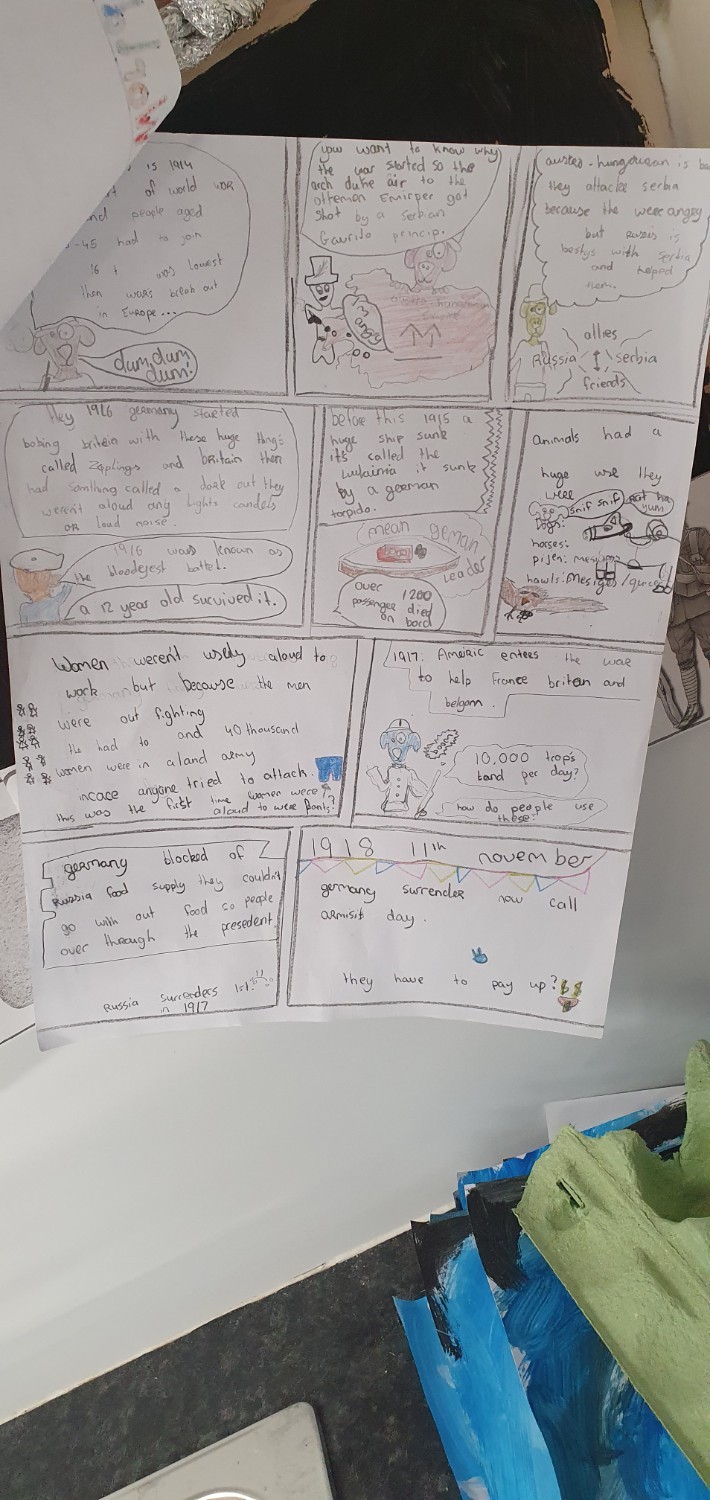 is 1914
of world WOR
people aged
-45 had to join
16 + lowest
then wars break out
in Europe...
dum dum
dum!
you want to know why
the war started so the
arch duke air to the
ottemen Emirper got
shot by a serbian
Gavrilo princip.
austro-hungourean is
they attacke serbia
because the were angry
but Russis is
bestys with serbia
and helped
them.
allies
Russia serbia
friends
Hey 1916 germany started
bobing britein with these huge things
called Zeplings and britain then
had somthing called a dark out they
werent aloud any lights candels
or loud noise.
1916 was known as
the bloodejest battel.
a 12 year old survived it.
before this 1915 a
huge ship sunk
it's called the
by a german
torpido.
mean geman
Leader
over 1200
passenger died
on bord
animals had a
huge use they
were
snif snif
yum
Dogs:
horses:
pijen:
Women werent usely aloud to
work but because the men
were out fighting
the had to and 40 thousand
women were in a land army
incace anyone tried to attack.
this was the first time women were
aloud to were pants?
1917: Ameiric entees the war
to help France britan and
belgom.
10,000 trop's
land per day?
how do people use
these?
germany blocked of
Russia food supply they couldn't
go with out food so people
over through the presedent
Russia surrenders 1st.
in 1917
1918 11th november
germany surrender now call
armisit day.
they have to pay up?